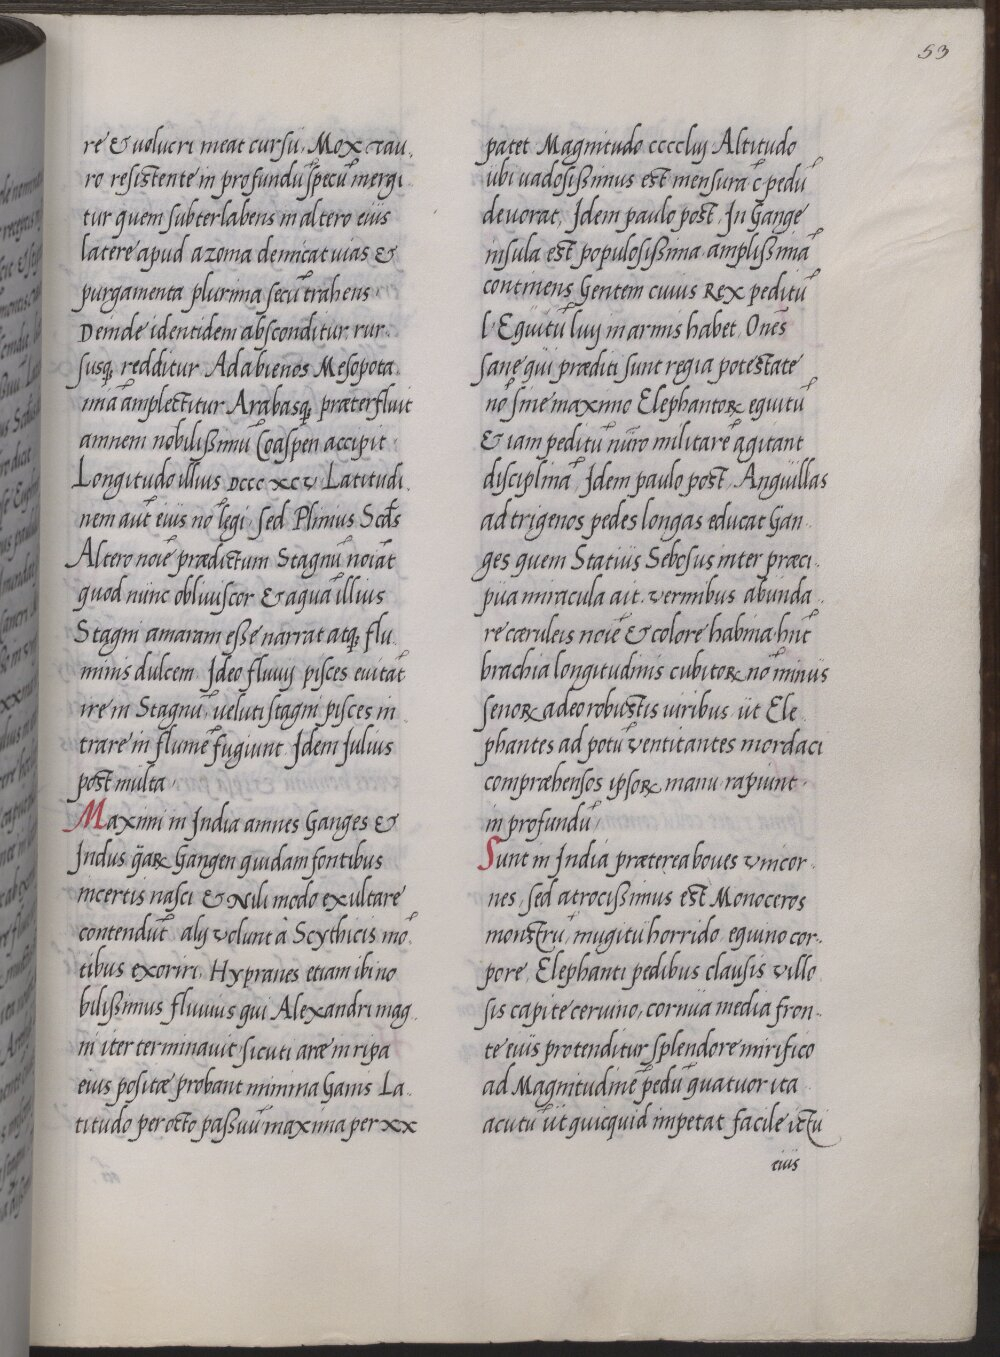 53
re & uolucri meat cursu. Mox Tau.
ro resistente in profundū specū mergi
tur quem subterlabens in altero eius
latere apud azoma demicat uias &
purgamenta plurima secū trahens.
Deinde identidem absconditur, rur.
susq, redditur Adabienos Mesopota.
miā amplectitur Arabasq, præterfluit
amnem nobilißimū Coaspen accipit.
Longitudo illius DCCC XC V Latitudi.
nem aut̄ eius no legi, sed Plinius Scd̄s
Altero noīe prædictum Stagnū noiāt
quod nunc obliuiscor & aquā illius
Stagni amaram eße narrat atq, flu.
minis dulcem. Ideo fluuij pisces euitāt
ire in Stagnū, ueluti stagni pisces in
trare in flumē fugiunt. Idem Julius
post multa.
Maximi in India amnes Ganges &
Indus q̄aꝝ Gangen quidam fontibus
incertis nasci & Nili modo exultare
contendūt alij volunt à Scythicis mō.
tibus exoriri, Hypranes etiam ibi no
bilißimus fluuius qui Alexandri mag.
ni iter terminauit, sicuti aræ in ripa
eius positæ probant minima Ganis La.
titudo per octo paßuū maxima per xx
patet Magnitudo cccclvij Altitudo
ubi uadosißimus est mensurā c̄ pedū
deuorat, Idem paulo post, In Gange
insula est populosißima amplißimā
continens Gentem cuius REX peditū
l. Equitū luij in armis habet. Onēs
sane qui præditi sunt regia potestate
nō sine maximo Elephantoꝝ equitū
& iam peditū nūro militarē agitant
disciplinā, Idem paulo post, Anguillas
ad trigenos pedes longas educat Gan.
ges quem Statius Sebosus inter præci.
pua miracula ait. vermibus abunda.
re cæruleis noīe & colore habina. hnt̄
brachia longitudinis cubitoꝝ nō minus
senoꝝ adeo robustis uiribus ut Ele.
phantes ad potū ventitantes mordaci
compræhensos ipsoꝝ manu rapiunt.
in profundū.
Sunt in India præterea boues vnicor.
nes, sed atrocißimus est Monoceros
monstrū, mugitu horrido, equino cor.
pore, Elephanti pedibus clausis villo.
sis capite ceruino, cornua media fron.
te eius protenditur splendore mirifico
ad Magnitudinē pedū quatuor ita
acutū ut quicquid impetat facile ictu
eius